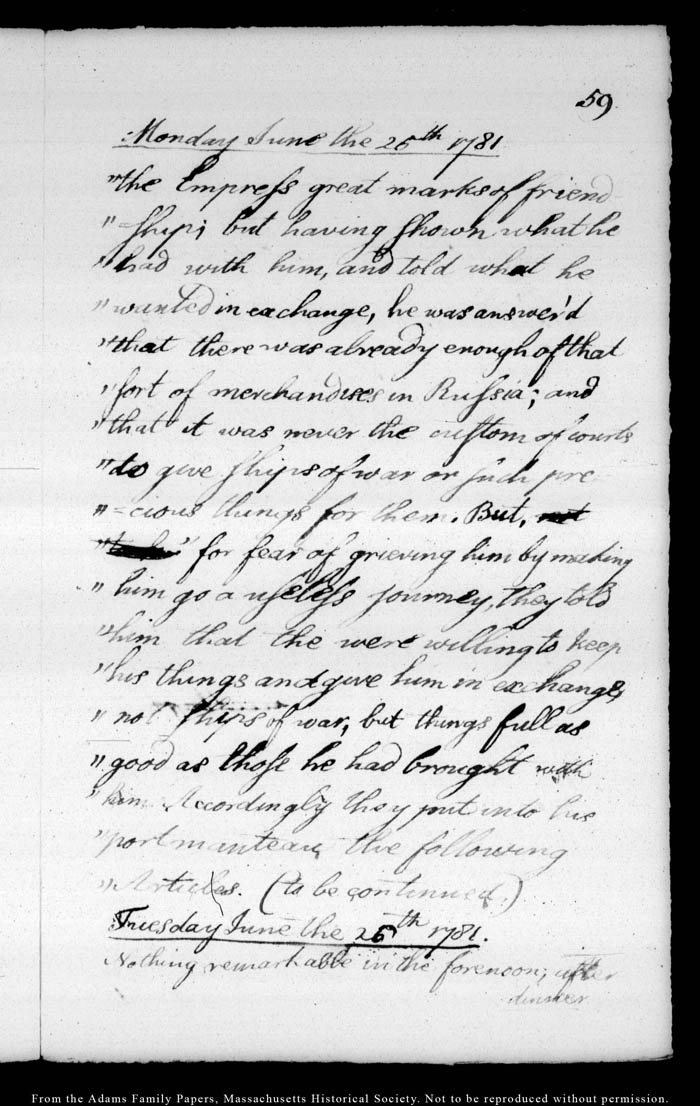 59
Monday June the 25th 1781
"the Empress great marks of friend
"=ship; but having shown what he
"had with him, and told what he
"wanted in exchange, he was answer'd
"that there was already enough of that
"sort of merchandises in Russia; and
"that it was never the custom of courts
"to give ships of war or such pre
"=cious things for them. But, not
" for fear of grieving him by making
"him go a useless journey, they told
"him that the were willing to keep
"his things and give him in exchange,
"not ships of war, but things full as
"good as those he had brought with
"him. Accordingly they put into his
"portmanteau, the following
"Articles. (to be continued.)
Tuesday June the 26th 1781.
Nothing remarkable in the forenoon; after
dinner
From the Adams Family Papers, Massachusetts Historical Society. Not to be reproduced without permission.